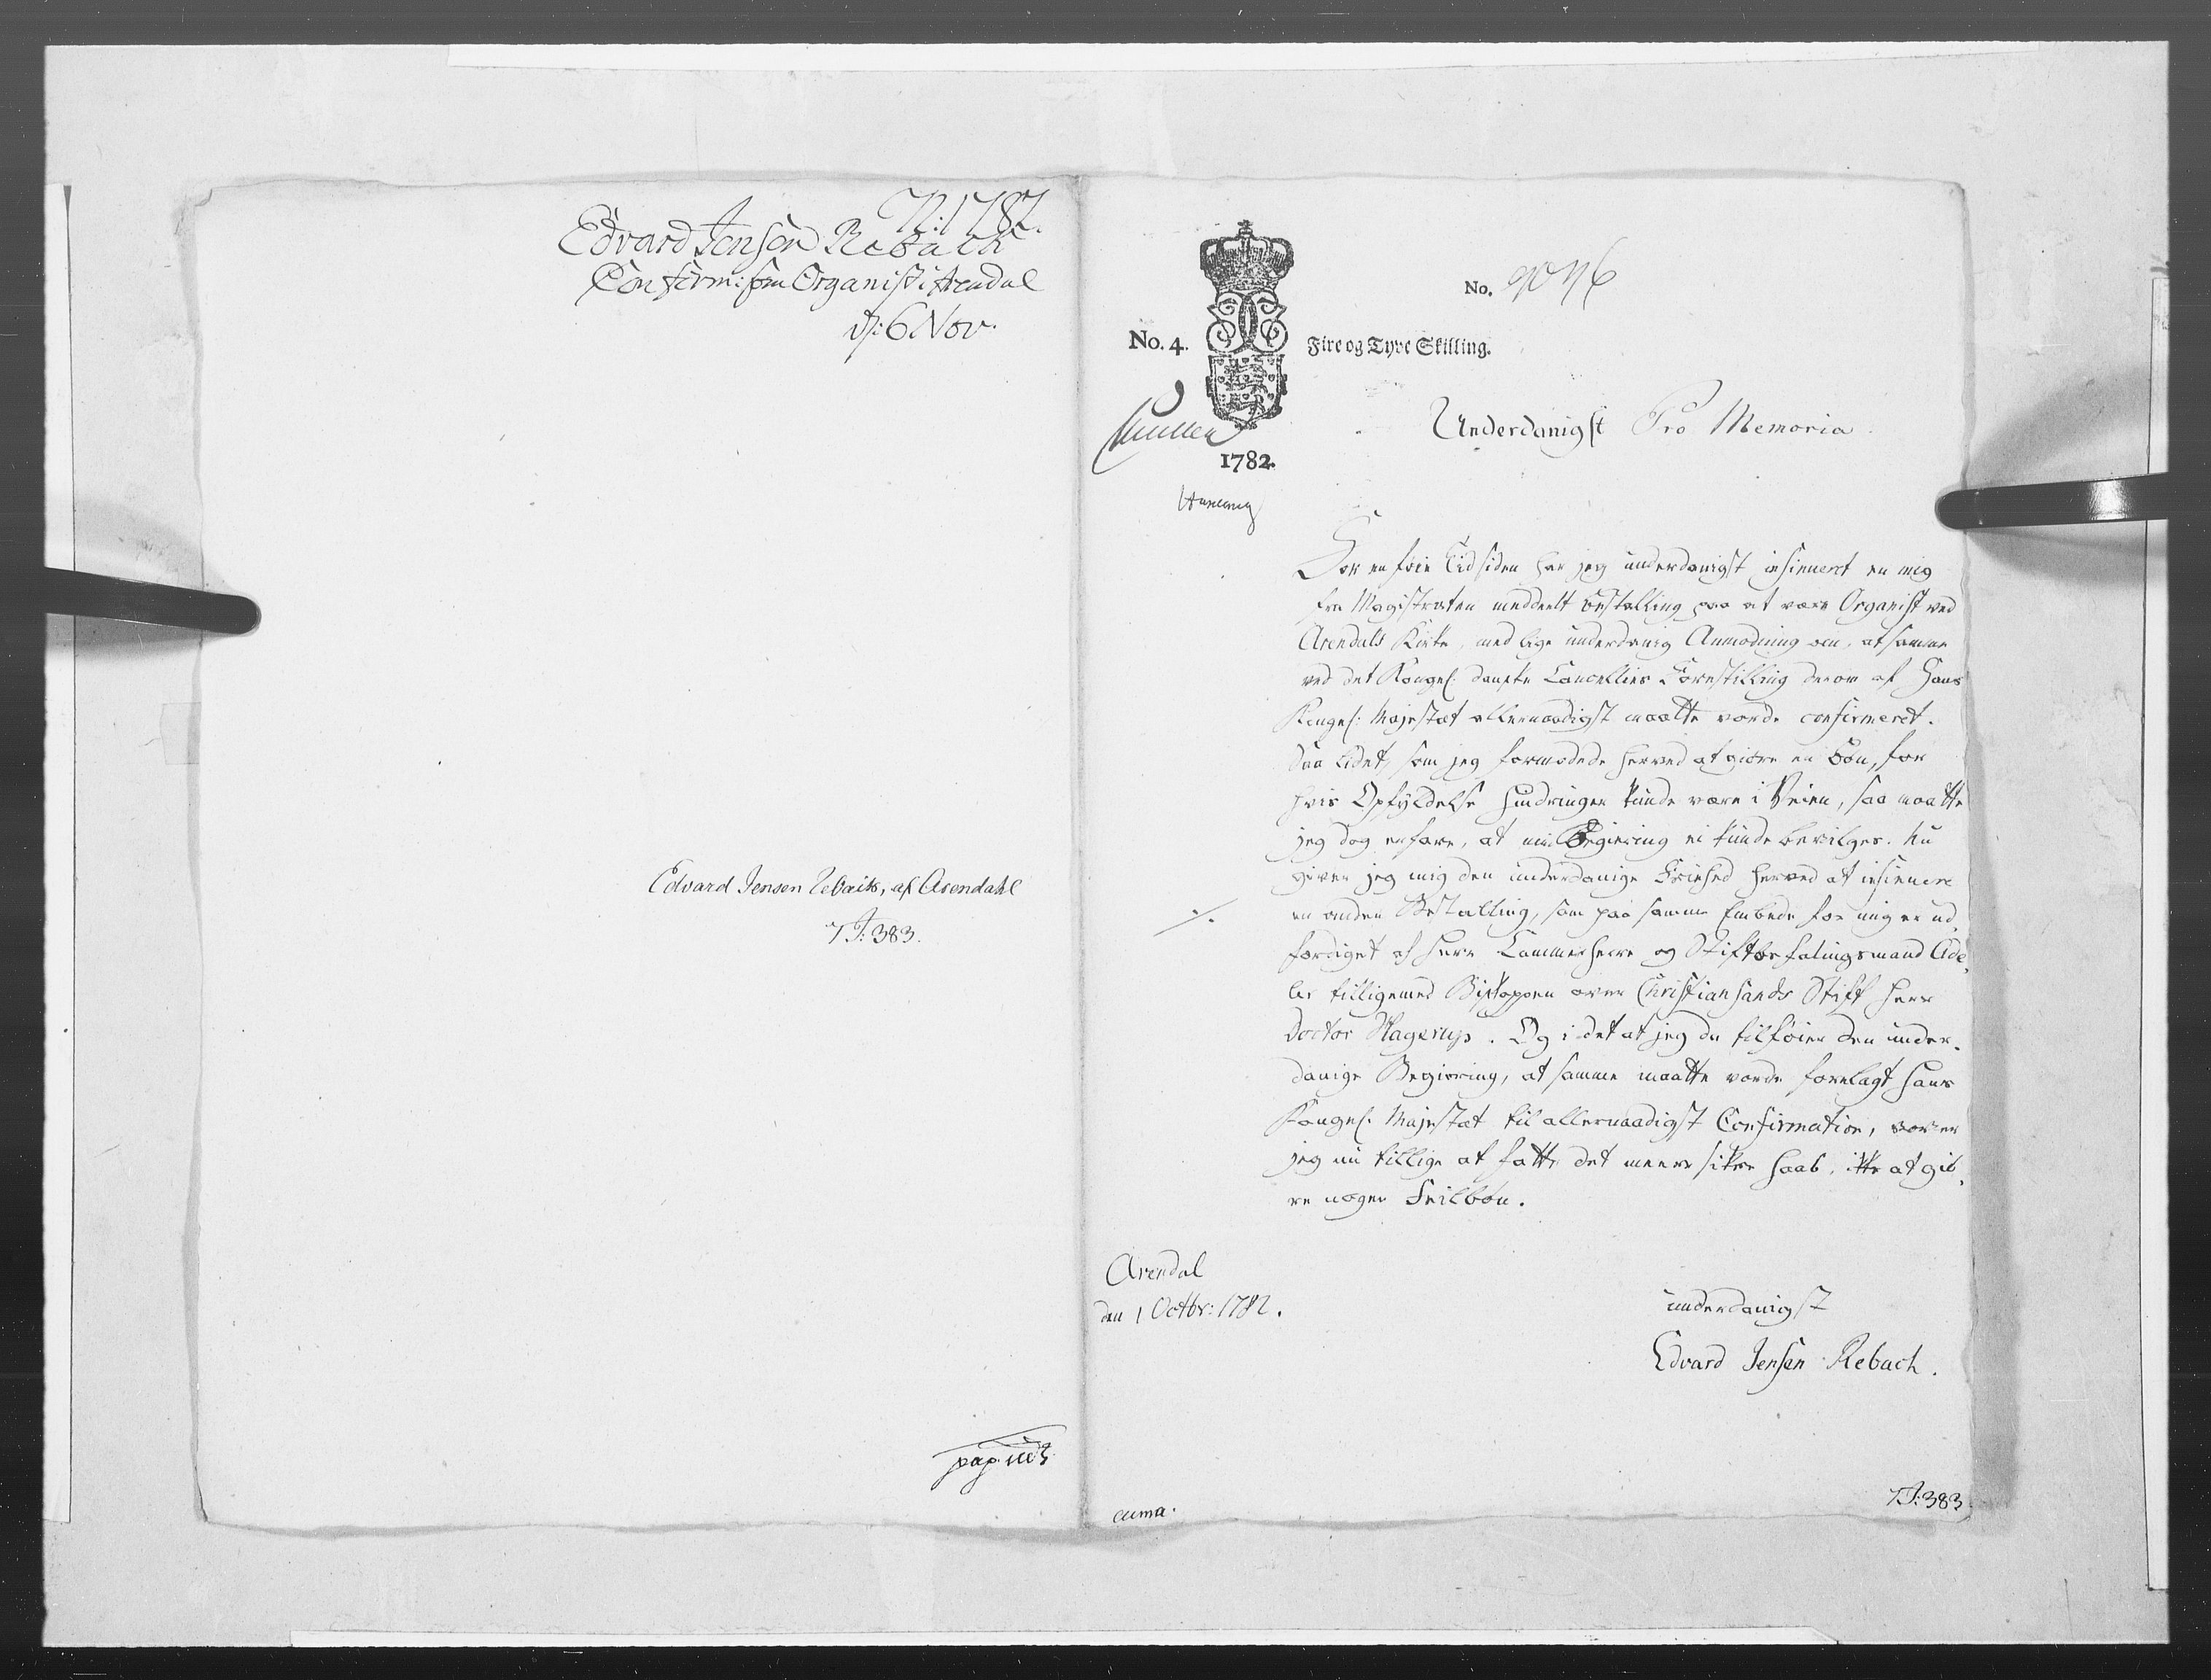 N: 1782.
Edvard Jensen Rebach
Confirm: som Organist i Arendal
d: 6 Nov.
Edvard Jensen Rebach, af Arendahl
7 J: 383.
No. 4.
Fire og Tyve Skilling.
No. 9046
1782.
Underdanigst Pro Memoria
For en føie Tid siden har jeg underdanigst insinueret en mig
fra Magistraten meddeelt Bestalling paa at være Organist ved
Arendals Kirke, med lige underdanig Anmodning om, at samme
ved det Kongel: danske Cancellies Forestilling derom af Hans
Kongel: Majestæt allernaadigst maatte vorde confirmeret.
Saa lidet, som jeg formodede herved at giøre en Bøn, for
hvis Opfyldelse Hindringer kunde være i Veien, saa maatte
jeg dog erfare, at min Begiering ei kunde bevilges. Nu
giver jeg mig den underdanige Friehed herved at insinuere
en anden Bestalling, som paa samme Embede for mig er ud,
færdiget af Herr Cammerherre og Stiftbefalingsmand Ade,
ler tilligemed Biskoppen over Christiansands Stift Herr
Doctor Hagerup. Og i det at jeg da tilføier den under,
danige Begiering, at samme maatte vorde forelagt Hans
Kongel: Majestæt til allernaadigst Confirmation, vover
jeg nu tillige at fatte det meere sikre Haab, ikke at giö,
re nogen Feilbøn.
Arendal
den 1 Octbr: 1782.
underdanigst
Edvard Jensen Rebach.
7 J: 383.